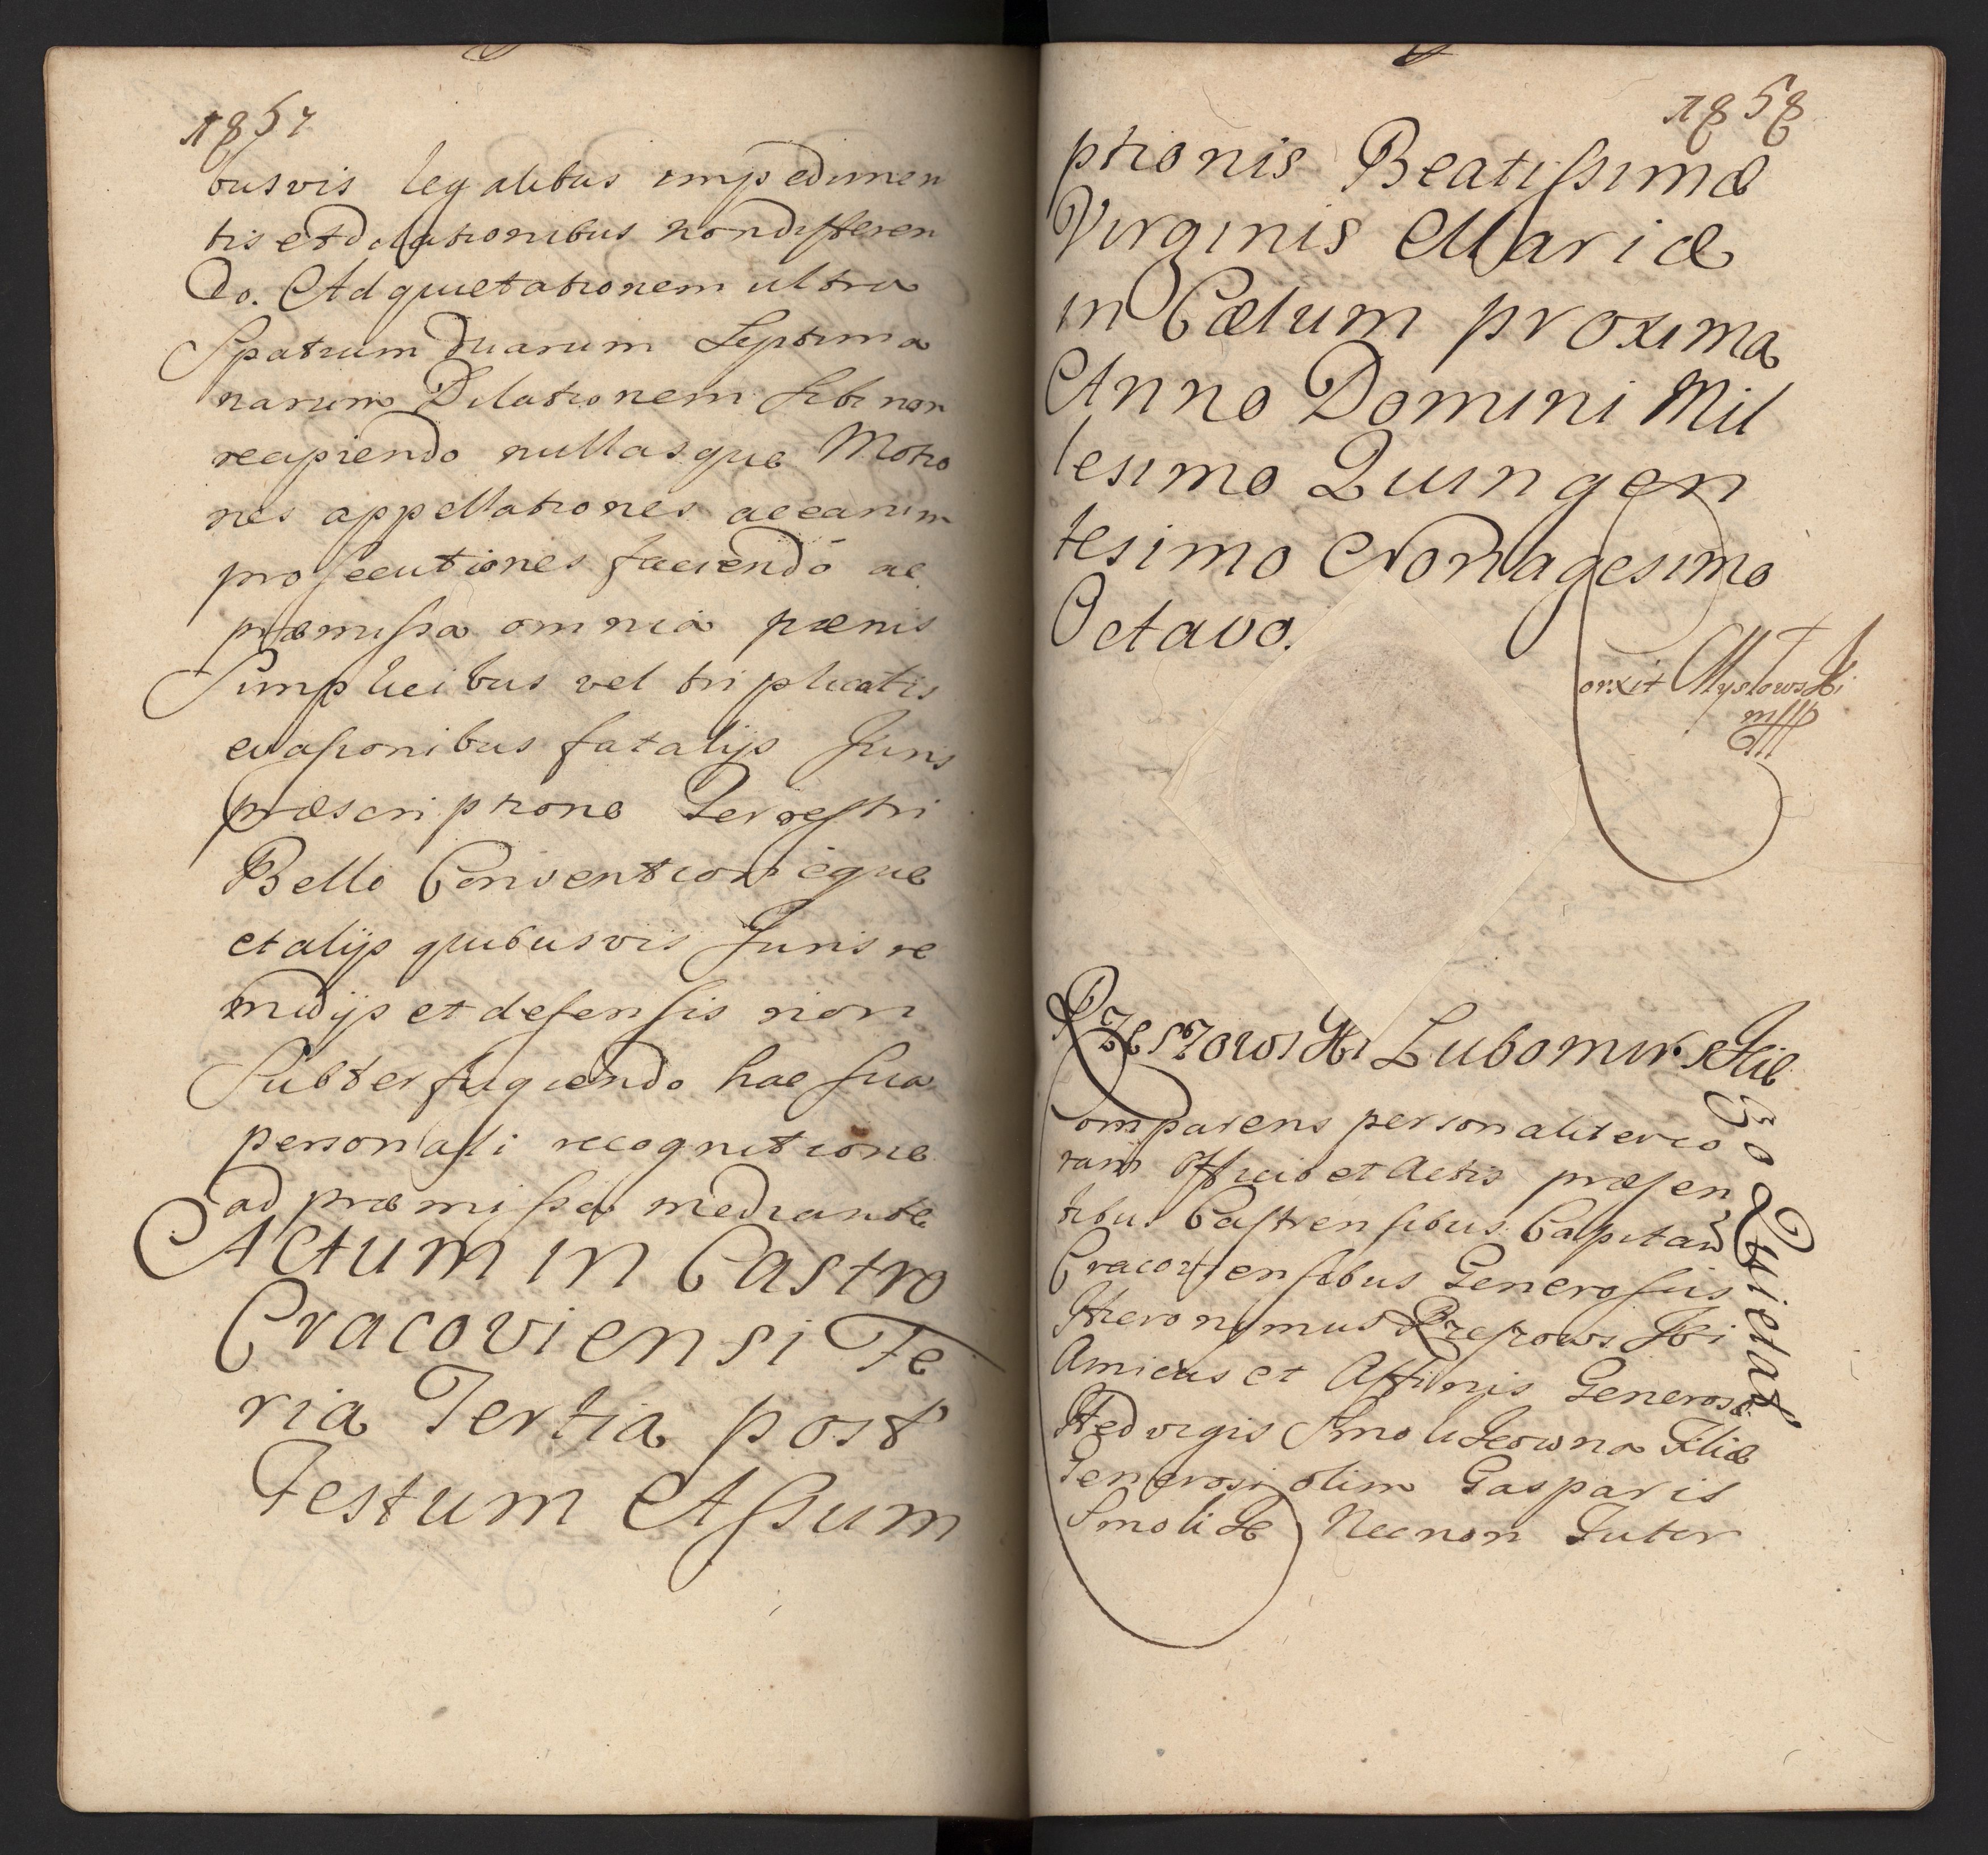 1857
busvis legalibus impedimen
tis et dilationibus non differen
do. Ad quietationem ultra
Spatium duarum Septima
narum Dilationem sibi non
recipiendo nullasque Motio
nes appellationes ac earum
prosecutiones faciendo ac
præmissa omnia pænis
Simplicibus vel triplicatis
evasionibus fatalijs Juris
præscriptione Terrestri
Bello Conventioneque
et alijs quibusvis Juris re
medijs et defensis non
Subterfugiendo hac sua
personali recognitione
ad præmissa mediante
Actum in Castro
Cracoviensi Fe
ria Tertia post
Festum Assum
1858
ptionis Beatissimæ
Virginis Mariæ
in Cælum proxima
Anno Domini Mil
lesimo Quingen
tesimo Nonagesimo
Octavo.
orxit Mysłowski
mpp
Rzeszowski Lubomirskie
go Quietat
Comparens personaliter co
ram Officio et Actis præsen
tibus Castrensibus Capitan
Cracoviensibus Generosus
Hieronymus Rzeszowski
Amicus et Affinis Generosæ
Hedvigis Smolikowna Filiæ
Generosi olim Gasparis
Smolik Necnon Tutor